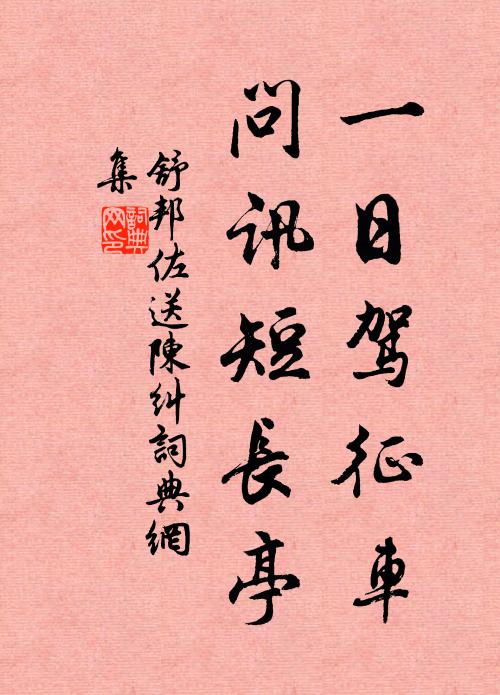 一日駕征車
問訊短長亭
舒邦佐送陳糾詞典網
集
詞典
网印